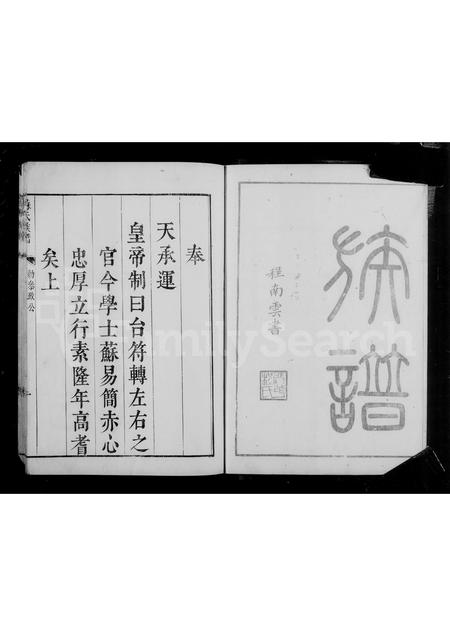 族譜
程南雲書
奉
天承運
皇帝制曰台符轉左右之
官今學士蘇易簡赤心
忠厚立行素隆年高耆
矣上
氏族譜
勅參政公
FamilySearch